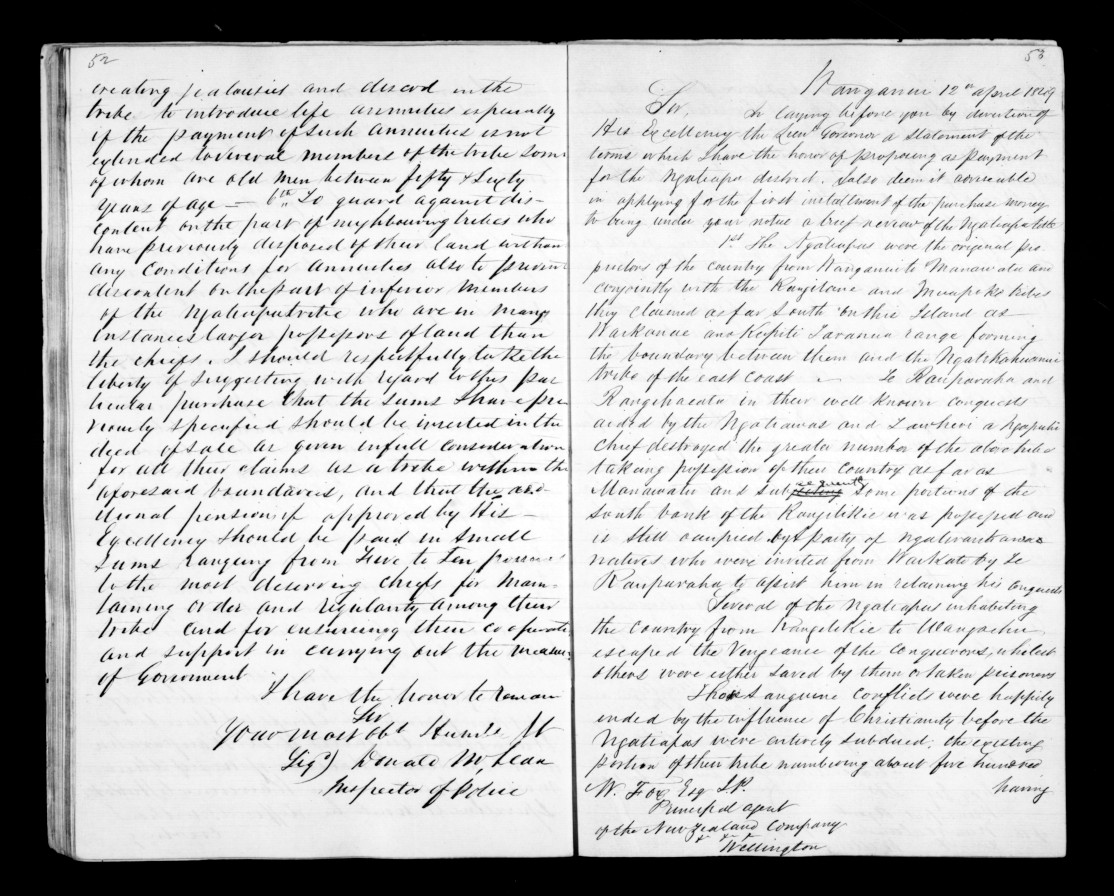 52
creating jealousies and discord in the
tribe to introduce life annuities especially
if the payment of such annuities is not
extended to several members of the tribe some
of whom are old men between fifty & sixty
years of age — 6th To guard against dis-
content on the part of neighbouring tribes who
have previously disposed of their land without
any conditions for annuities also to prevent
discontent on the part of inferior members
of the Ngatiapa tribe who are in many
instances larger possessors of land than
the chiefs. I should respectfully take the
liberty of suggesting with regard to this par
ticular purchase that the sums I have pre
viously specified should be inserted in the
deed of sale as given in full consideration
for all their claims as a tribe within the
aforesaid boundaries, and that the add-
itional pensions if approved by His —
Excellency should be paid in small
sums ranging from Five to Ten pounds
to the most deserving chiefs for main-
taining order and regularity among their
tribe and for ensureing their co operation
and support in carrying out the measures
of Government
I have the honor to remain
Sir
Your most obt Humble St
Sigd) Donald McLean
Inspector of Police
53
Wanganui 12th April 1849
Sir, In laying before you by direction of
His Excellency the Lieut Governor a statement of the
terms which I have the honor of proposing as payment
for the Ngatiapa district. I also deem it advisable
in applying for the first installment of the purchase money
to bring under your notice a brief review of the Ngatiapa title
1st The Ngatiapas were the original pro-
prietors of the country from Wanganui to Manawatu and
conjointly with the Rangitane and Muapoko tribes
they claimed as far South on this Island as
Waikanae and Kapiti Tararua range forming
the boundary between them and the Ngatikahununu
tribe of the east coast — Te Rauparaha and
Rangihaeata in their well known conquests
aided by the Ngatiawas and a Ngapuhi
chief destroyed the greater number of the above tribes
taking possession of their country as far as
Manawatu and subsequently some portions of the
South bank of the Rangitikie was possessed and
is still occupied by a party of Ngatiraukawas
natives who were invited from Waikato by Te
Rauparaha to assist him in retaining his conquests
Several of the Ngatiapas inhabiting
the country from Rangitikie to Wangaehu
escaped the vengeance of the conquerors, whilst
others were either saved by them or taken prisoners
These sanguine conflicts were happily
ended by the influence of Christianity before the
Ngatiapas were entirely subdued; the existing
portion of their tribe numbering about five hundred
having
W. Fox Esq J.P.
Principal agent
of the New Zealand Company
Wellington